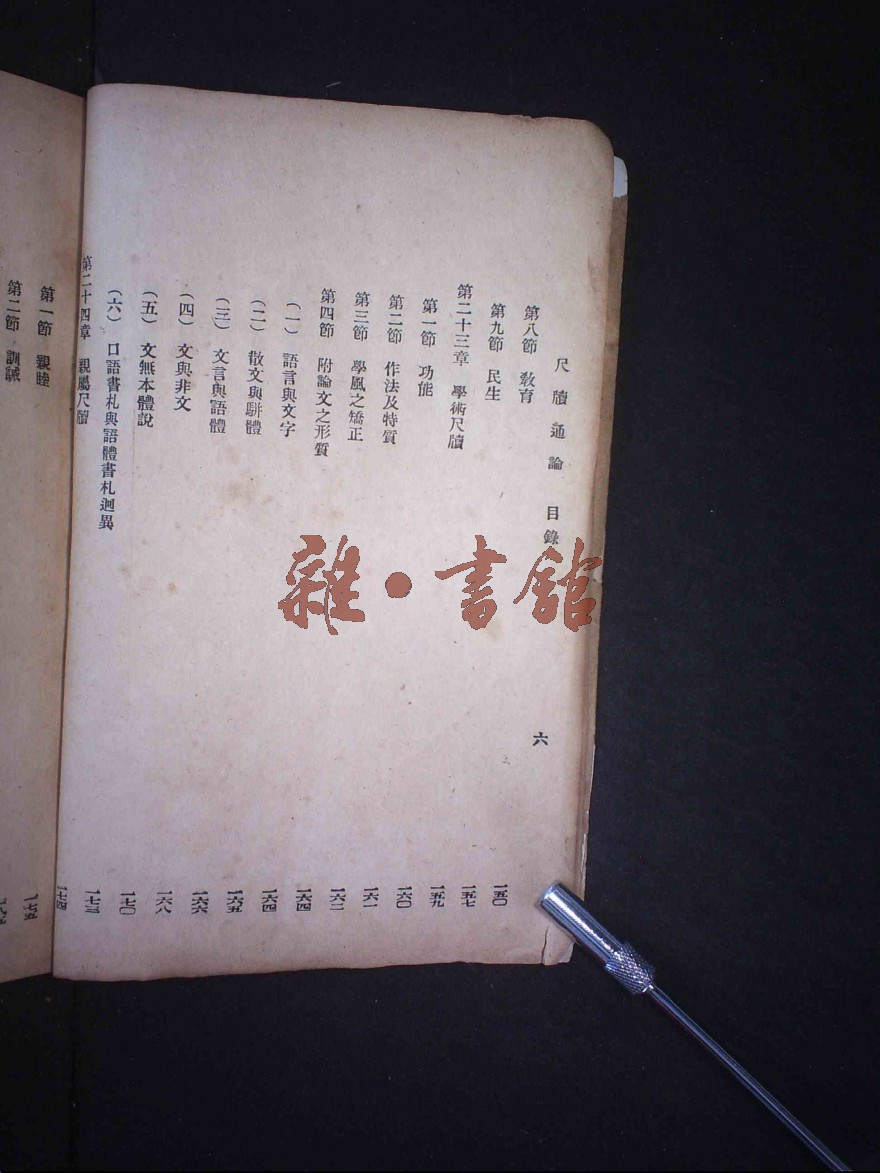 尺牘通論 目錄
六
第八節 教育 一五〇
第九節 民生 一五七
第二十三章 學術尺牘 一五九
第一節 功能 一六〇
第二節 作法及特質 一六一
第三節 學風之矯正 一六二
第四節 附論文之形質 一六四
(一) 語言與文字 一六四
(二) 散文與駢體 一六五
(三) 文言與語體 一六六
(四) 文與非文 一六八
(五) 文無本體說 一七〇
(六) 口語書札與語體書札迥異 一七三
第二十四章 親屬尺牘 一七四
第一節 親睦 一七五
第二節 訓誡
雜·書館